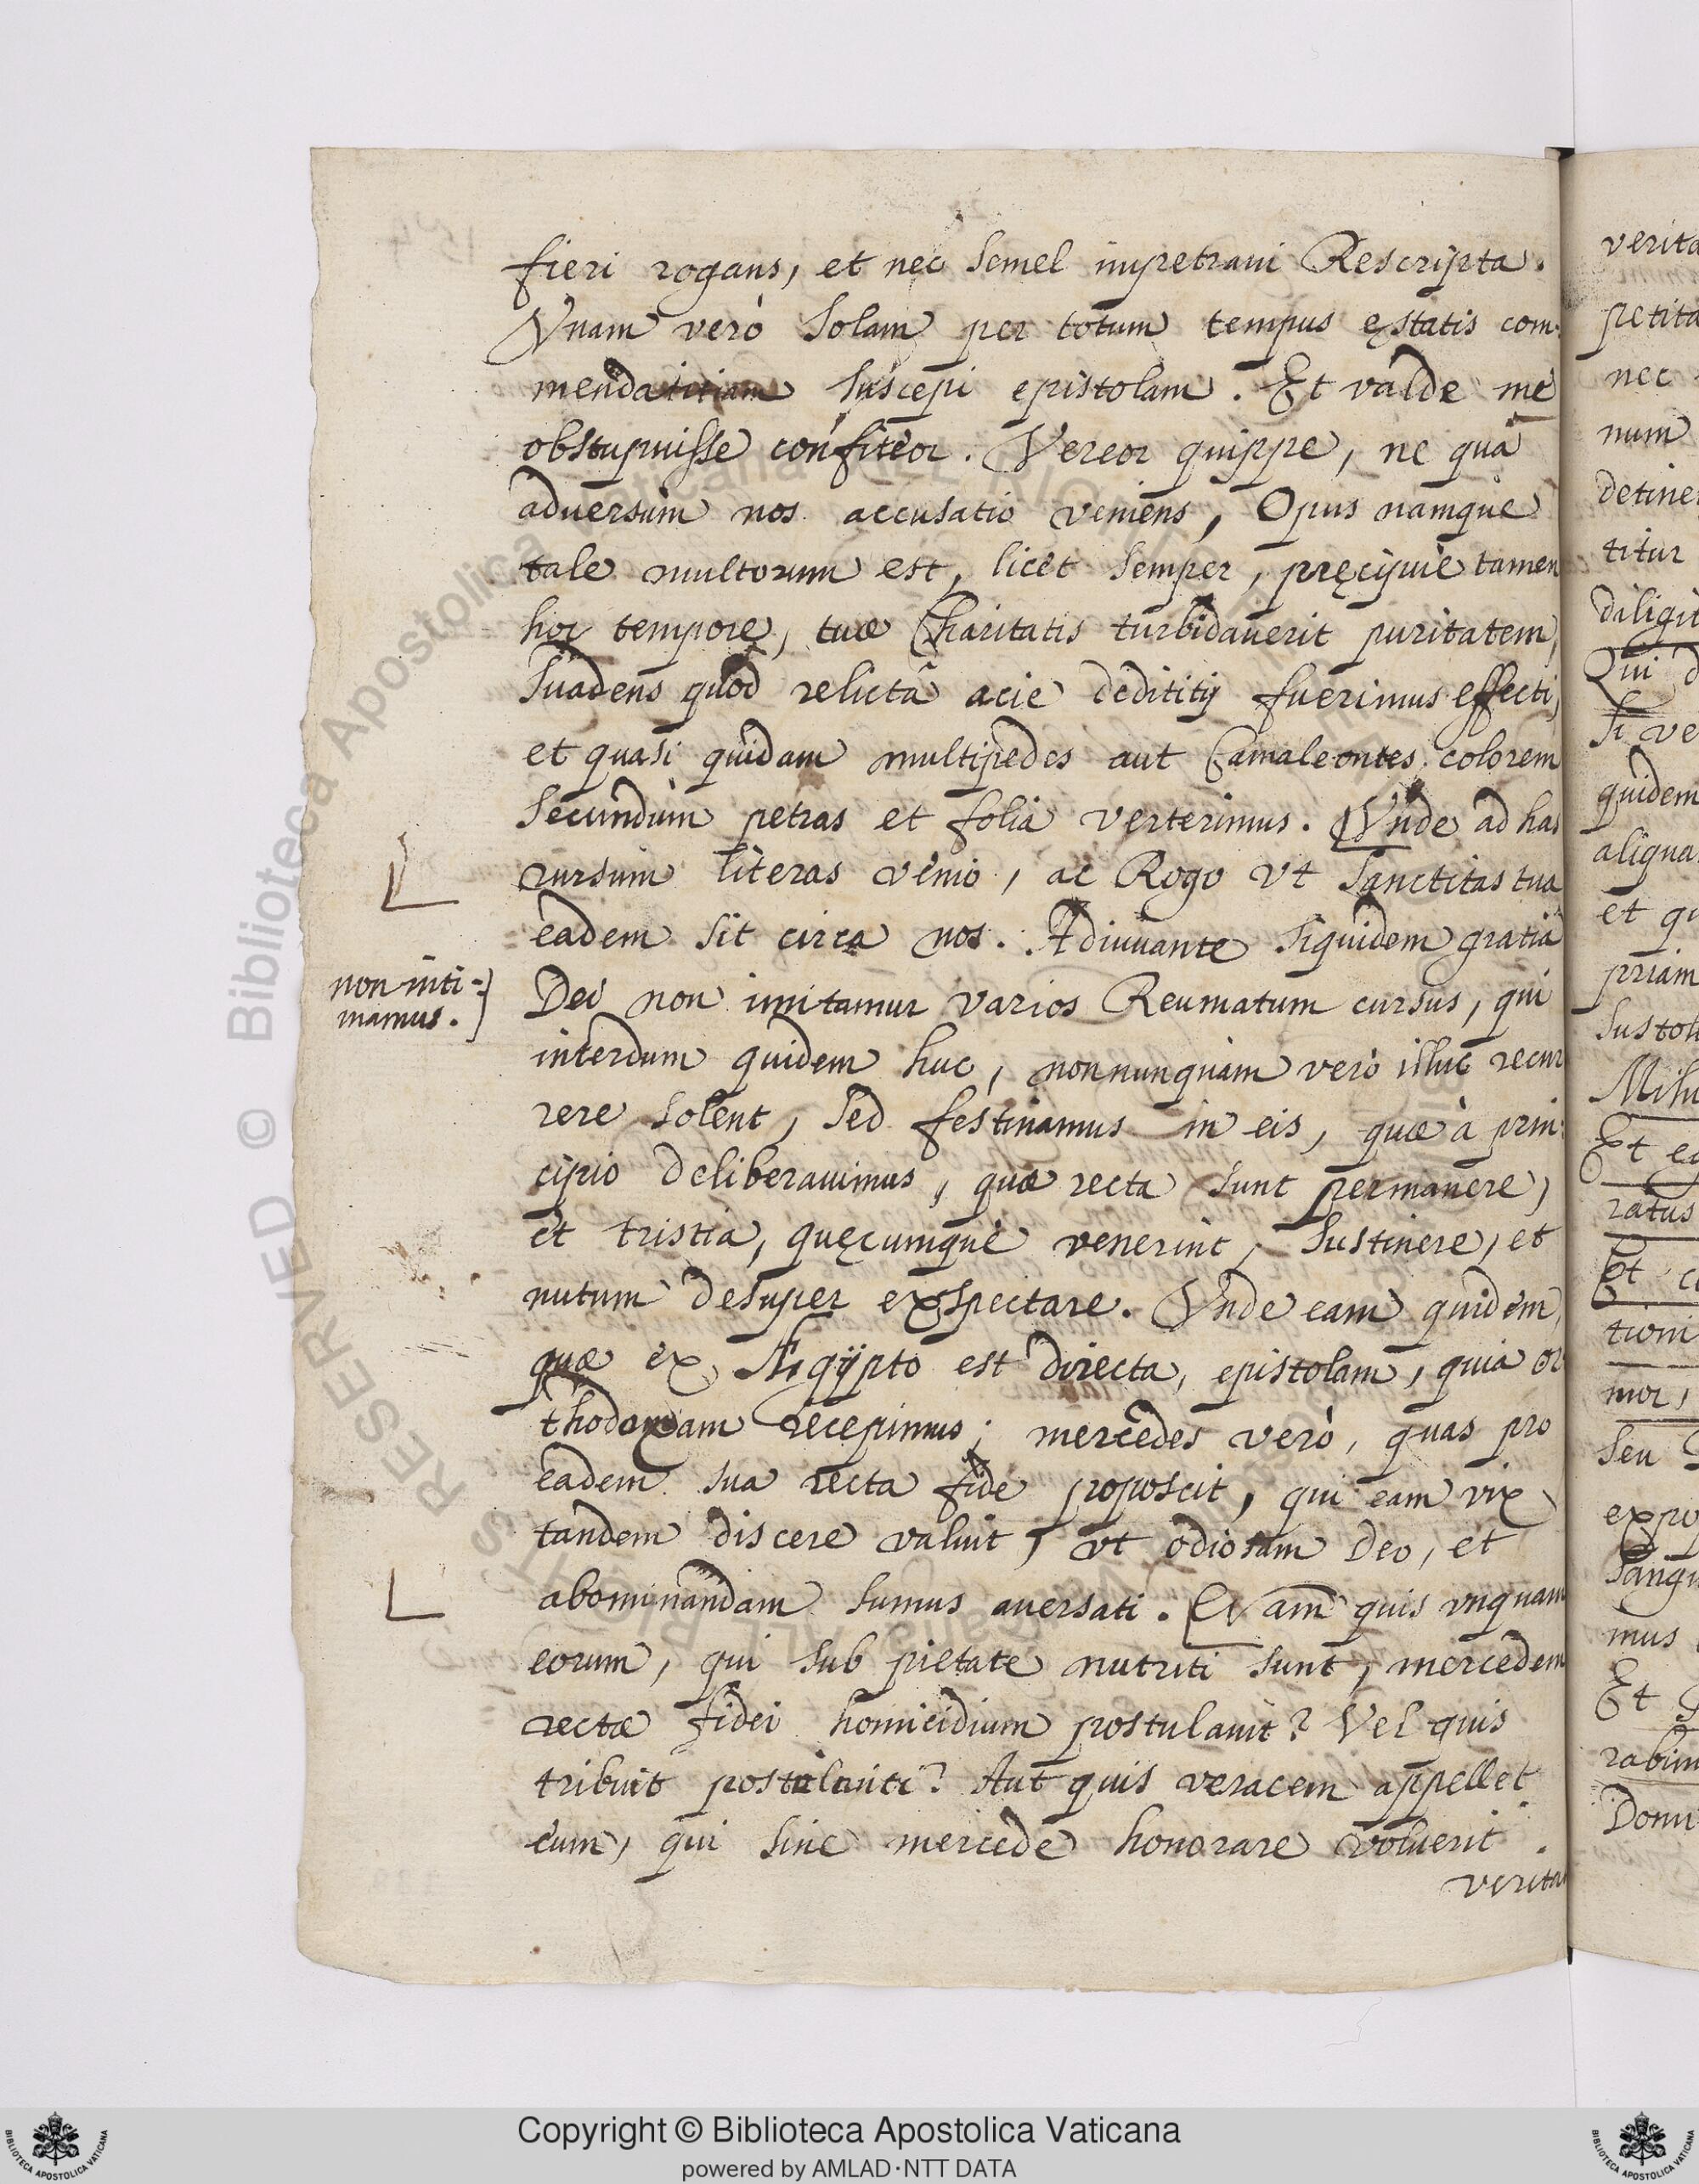 fieri rogans, et nec semel impetraui Rescripta.
Vnam verò solam per totum tempus ęstatis com-
mendatitiam suscepi epistolam. Et valde me
obstupuisse confiteor. Vereor quippe, ne qua
aduersum nos accusatio veniens, Opus namque
tale multorum est, licet semper, pręcipuè tamen
hoc tempore, tuæ Charitatis turbidauerit puritatem,
suadens quod relicta acie dedititij fuerimus effecti,
et quasi quidam multipedes aut Camaleontes colorem
secundum petras et folia verterimus. Vnde ad has
rursum literas venio, ac Rogo vt sanctitas tua
eadem sit circa nos. Adiuuante siquidem gratia
non inti-
mamus.
Dei non imitamur varios Reumatum cursus, qui
interdum quidem huc, nonnunquam verò illuc recur
rere solent, sed festinamus in eis, quæ à prin-
cipio deliberauimus, quæ recta sunt permanere,
et tristia, quęcumque venerint, sustinere, et
nutum desuper exspectare. Vnde eam quidem,
quæ ex Ægÿpto est directa, epistolam, quia or
thodoxam recepimus; mercedes verò, quas pro
eadem sua recta fide poposcit, qui eam vix
tandem discere valuit, vt odiosam Deo, et
abominandam sumus auersati. Nam quis vnquam
eorum, qui sub pietate nutriti sunt, mercedem
rectæ fidei homicidium postulauit? Vel quis
tribuit postulanti? Aut quis veracem appellet
eum, qui sine mercede honorare voluerit.
verita
verita
petita
nec
num
detine
titur
diligit
Qui d
si ve
quidem
aliqua
et qu
priam
sustol
Mihi
Et eg
ratus
Et c
tioni
mor,
seu
expo
sangu
mus
Et
rabim
Domi
© Biblioteca Apostolica Vaticana
RESERVED
ALL RIGHTS
Copyright © Biblioteca Apostolica Vaticana
powered by AMLAD·NTT DATA
BIBLIOTECA APOSTOLICA VATICANA
BIBLIOTECA APOSTOLICA VATICANA